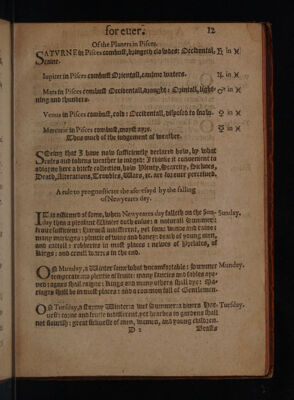 for euer. 12
Of the Planets in Pisces.
SATVRNE in Pisces combust, bringeth cloudes: Occidental, ♄ in ♓
raine.
Iupiter in Pisces combust Orientall, causeth waters. ♃ in ♓
Mars in Pisces combust Occidentall, : Orientall, light- ♂ in ♓
ning and thunders.
Venus in Pisces combust, cold: Occidentall, disposed to snow. ♀ in ♓
Mercurie in Pisces combust, moyst ayre. ☿ in ♓
Thus much of the iudgement of weather.
SEeing that I have now sufficiently declared how, by what
rules and tokens weather is iudged: I thinke it conuenient to
adioyne here a briefe collection, how Plenty, Scarcity, Sicknes,
Death, Alterations, Troubles, Warre, &c. are for euer perceiued.
A rule to prognosticate the aforesayd by the falling
of Newyeares day.
IT is affirmed of some, when Newyeares day falleth on the Sun- Sunday.
day then a pleasant Winter doth ensue: a naturall Summer:
fruite sufficient: Haruest indifferent, yet some winde and raine:
many mariages: plentie of wine and honey: death of young men,
and cattell: robberies in most places: newes of Prelates, of
Kings: and cruell warres in the end.
ON Munday, a Winter somewhat vncomfortable: Summer Munday.
temperate: no plentie of fruite: many fancies and fables ope-
ned: agues shall raigne: Kings and many others shall dye: Ma-
riages shall be in most places: and a common fall of Gentlemen.
ON Tuesday, a stormy Winter: a wet Summer: a diuers Har- Tuesday.
uest: corne and fruite indifferent, yet hearbes in gardens shall
not flourish: great sicknesse of men, women, and young children.
D 2 Beasts